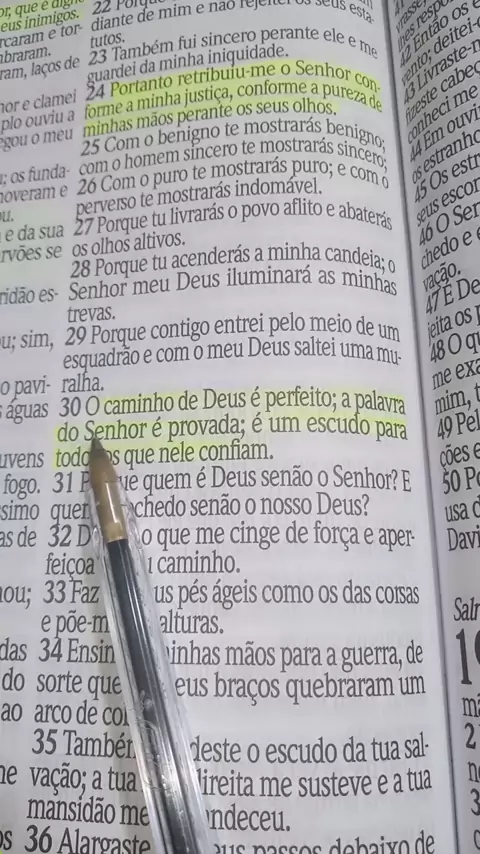 or, que é dign
eus inimigos.
rcaram e tor-
mbraram.
ram, laços de
nor e clamei
plo ouviu a
egou o meu
u; os funda-
noveram e
ou.
e da sua
rvões se
ridão es-
ou; sim,
o pavi-
s águas
uvens
fogo.
ssimo
as de
nou;
das
do
ao
diante de mim e não rejeitei os seus esta-
tutos.
23 Também fui sincero perante ele e me
guardei da minha iniquidade.
24 Portanto retribuiu-me o Senhor con-
forme a minha justiça, conforme a pureza de
minhas mãos perante os seus olhos.
25 Com o benigno te mostrarás benigno;
com o homem sincero te mostrarás sincero;
26 Com o puro te mostrarás puro; e com o
perverso te mostrarás indomável.
27 Porque tu livrarás o povo aflito e abaterás
os olhos altivos.
28 Porque tu acenderás a minha candeia; o
Senhor meu Deus iluminará as minhas
trevas.
29 Porque contigo entrei pelo meio de um
esquadrão e com o meu Deus saltei uma mu-
ralha.
30 O caminho de Deus é perfeito; a palavra
do Senhor é provada; é um escudo para
todo os que nele confiam.
31 P ue quem é Deus senão o Senhor? E
quem chedo senão o nosso Deus?
32 D o que me cinge de força e aper-
feiçoa caminho.
33 Faz us pés ágeis como os das corsas
e põe-m alturas.
34 Ensin inhas mãos para a guerra, de
sorte que eus braços quebraram um
arco de co
35 També deste o escudo da tua sal-
vação; a tua direita me susteve e a tua
mansidão me ndeceu.
36 Alargaste eus passos debaixo de
42 Então os
vento; deitei-
43 Livraste-m
fizeste cabeç
conheci me
44 Em ouvi
os estranho
45 Os estr
seus escon
46 O Sen
chedo e
vação.
47 É De
jeita os
48 O qu
me exa
mim, t
49 Pel
ções e
50 Po
usa d
Davi
Salr
2
3